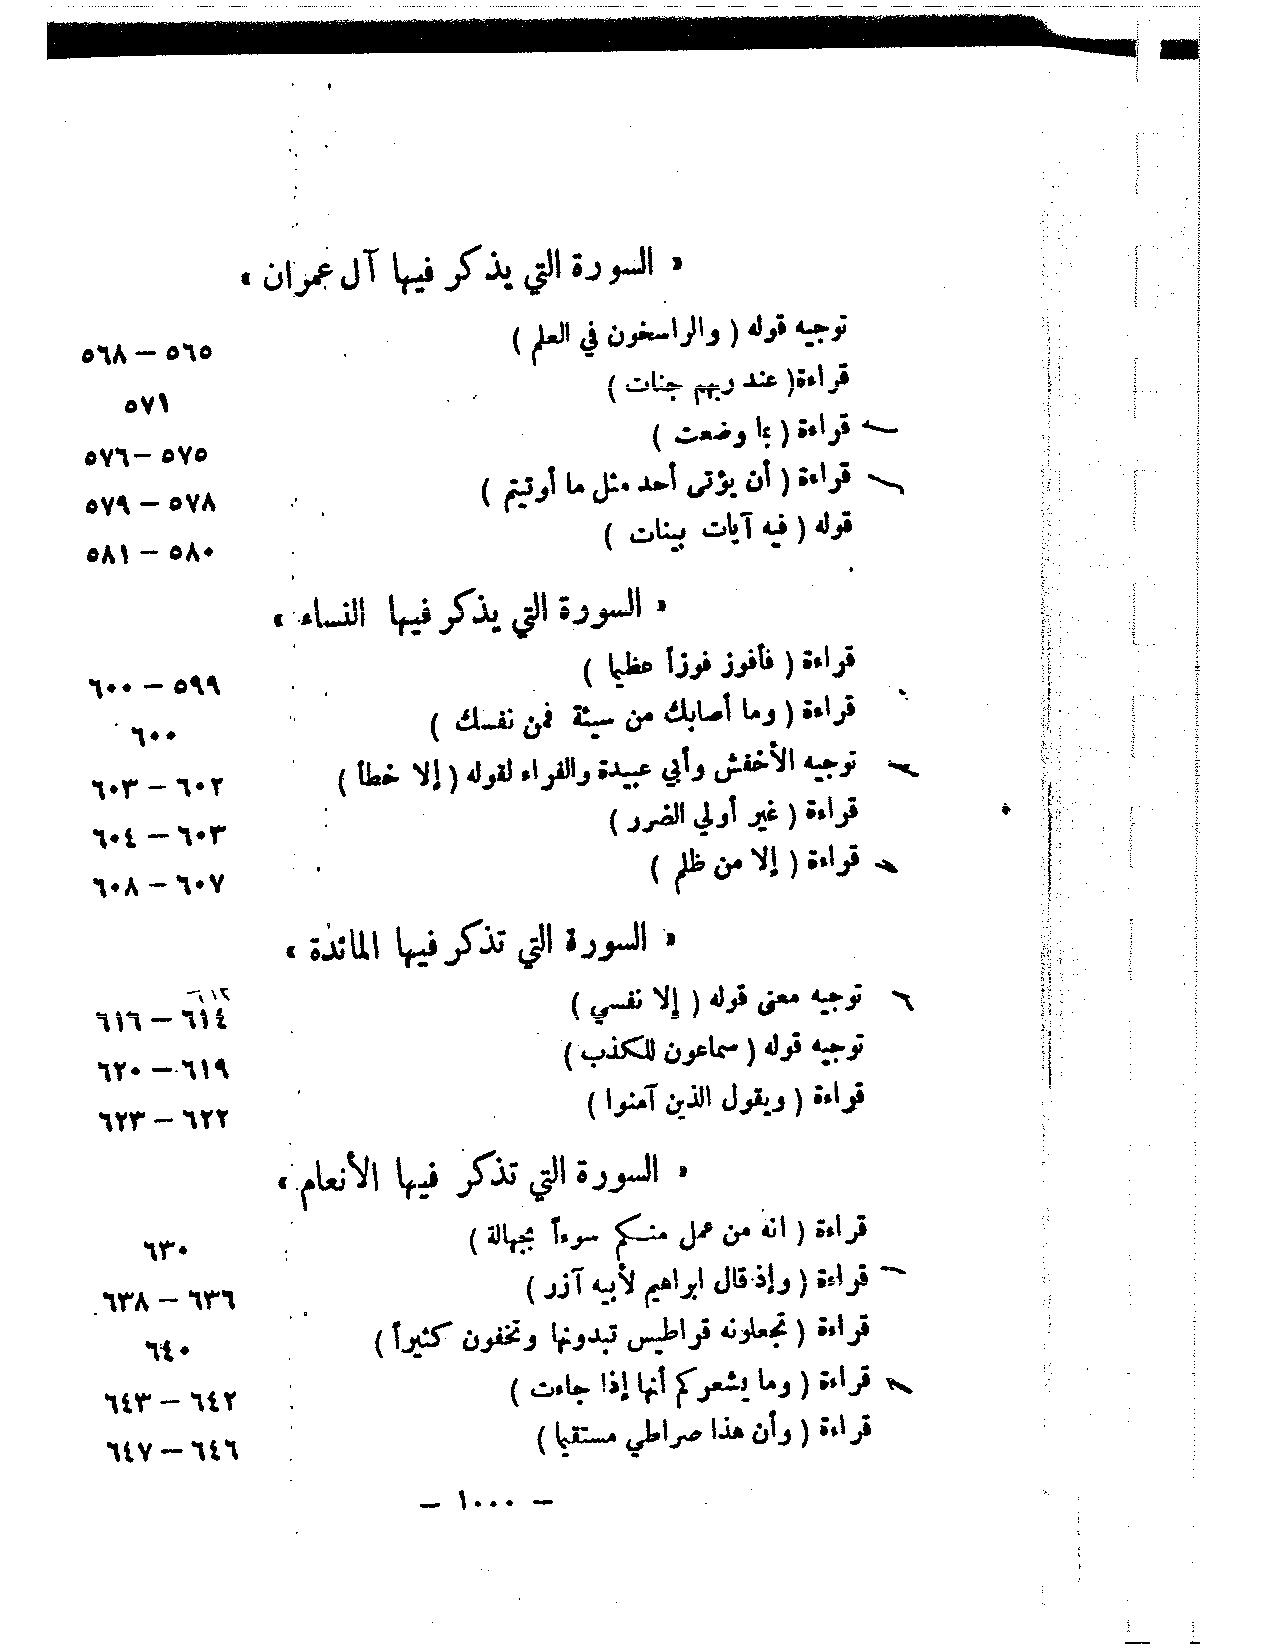 « السورة التي يذكر فيها آل عمران »
توجيه قوله ( والراسخون في العلم ) ٥٦٥ – ٥٦٨
قراءة( عند ربهم جنات ) ٥٧١
قراءة ( بما وضعت ) ٥٧٥ –٥٧٦
قراءة ( أن يؤتى أحد مثل ما أوتيتم ) ٥٧٨ – ٥٧٩
قوله ( فيه آيات بينات ) ٥٨٠ – ٥٨١
« السورة التي يذكر فيها النساء »
قراءة ( فأفوز فوزاً عظيما ) ٥٩٩ – ٦٠٠
قراءة ( وما أصابك من سيئة فمن نفسك ) ٦٠٠
توجيه الأخفش وأبي عبيدة والفراء لقوله ( إلا خطأ ) ٦٠٢ – ٦٠٣
قراءة ( غير أولي الضرر ) ٦٠٣ – ٦٠٤
قراءة ( إلا من ظلم ) ٦٠٧ – ٦٠٨
« السورة التي تذكر فيها المائدة »
٦١٢ –
توجيه معنى قوله ( إلا نفسي ) ٦١٤ – ٦١٦
توجيه قوله ( سماعون للكذب ) ٦١٩ – ٦٢٠
قراءة ( ويقول الذين آمنوا ) ٦٢٢ – ٦٢٣
« السورة التي تذكر فيها الأنعام »
قراءة ( انه من عمل منكم سوءاً بجهالة ) ٦٣٠
قراءة ( وإذ قال ابراهيم لأبيه آزر ) ٦٣٦ – ٦٣٨
قراءة ( تجعلونه قراطيس تبدونها وتخفون كثيراً ) ٦٤٠
قراءة ( وما يشعركم أنها إذا جاءت ) ٦٤٢ – ٦٤٣
قراءة ( وأن هذا صراطي مستقيما ) ٦٤٦ – ٦٤٧
– ١٠٠٠ –